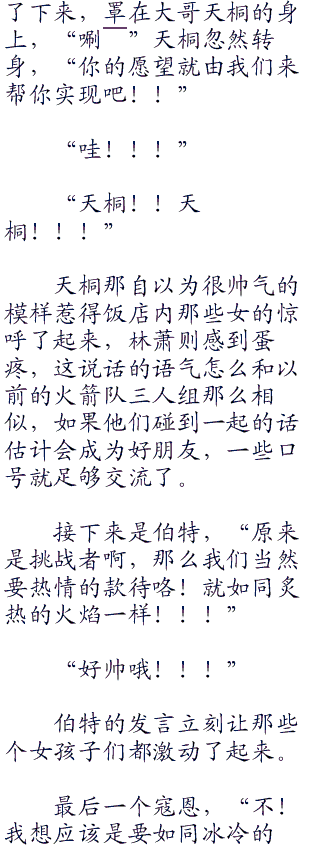 了下来，罩在大哥天桐的身
上，“唰——”天桐忽然转
身，“你的愿望就由我们来
帮你实现吧！！”
“哇！！！”
“天桐！！天
桐！！！”
天桐那自以为很帅气的
模样惹得饭店内那些女的惊
呼了起来，林萧则感到蛋
疼，这说话的语气怎么和以
前的火箭队三人组那么相
似，如果他们碰到一起的话
估计会成为好朋友，一些口
号就足够交流了。
接下来是伯特，“原来
是挑战者啊，那么我们当然
要热情的款待咯！就如同炙
热的火焰一样！！！”
“好帅哦！！！”
伯特的发言立刻让那些
个女孩子们都激动了起来。
最后一个寇恩，“不！
我想应该是要如同冰冷的